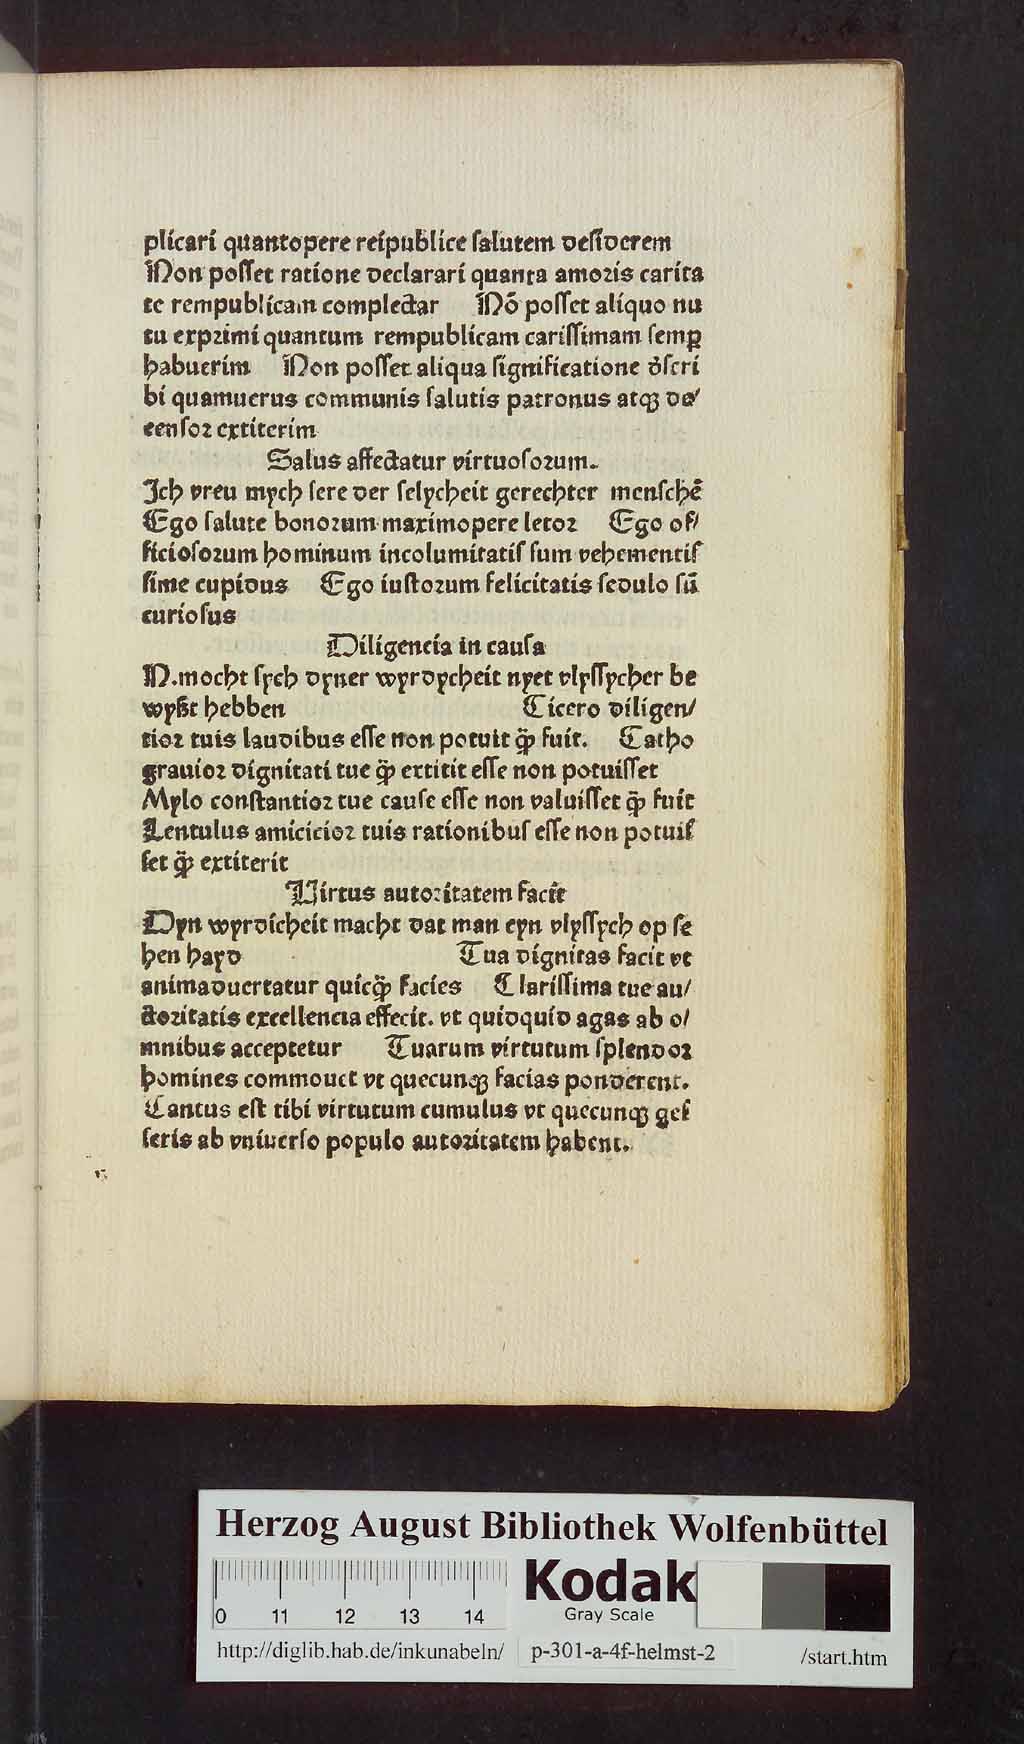 plicari quantopere reipublice ſalutem deſiderem
Non poſſet ratione declarari quanta amoris carita
te rempublicam complectar Nō poſſet aliquo nu
tu exprimi quantum rempublicam cariſſimam ſemꝑ
habuerim Non poſſet aliqua ſignificatione d̄ſcri
bi quamuerus communis ſalutis patronus atqꝫ de/
cenſor extiterim
Salus affectatur virtuoſorum.
Ich vreu mych ſere der ſelycheit gerechter menſchē
Ego ſalute bonorum maximopere letor Ego of/
ficioſorum hominum incolumitatiſ ſum vehementiſ
ſime cupidus Ego iuſtorum felicitatis ſedulo ſū
curioſus
Diligencia in cauſa
N.mocht ſych dyner wyrdycheit nyet vlyſſycher be
wyßt hebben Cicero diligen/
tior tuis laudibus eſſe non potuit qꝫ̄ fuit. Catho
grauior dignitati tue qꝫ̄ extitit eſſe non potuiſſet
Mylo conſtantior tue cauſe eſſe non valuiſſet qꝫ̄ fuit
Lentulus amicicior tuis rationibuſ eſſe non potuiſ
ſet qꝫ̄ extiterit
Virtus autoritatem facit
Dyn wyrdicheit macht dat man eyn vlyſſych op ſe
hen hayd Tua dignitas facit vt
animaduertatur quicqꝫ̄ facies Clariſſima tue au/
ctoritatis excellencia effecit. vt quidquid agas ab o/
mnibus acceptetur Tuarum virtutum ſplendor
homines commouet vt quecunqꝫ facias ponderent.
Tantus eſt tibi virtutum cumulus vt quecunqꝫ geſ
ſeris ab vniuerſo populo autoritatem habent.
Herzog August Bibliothek Wolfenbüttel
0 11 12 13 14
Kodak
Gray Scale
http://diglib.hab.de/inkunabeln/ p-301-a-4f-helmst-2 /start.htm